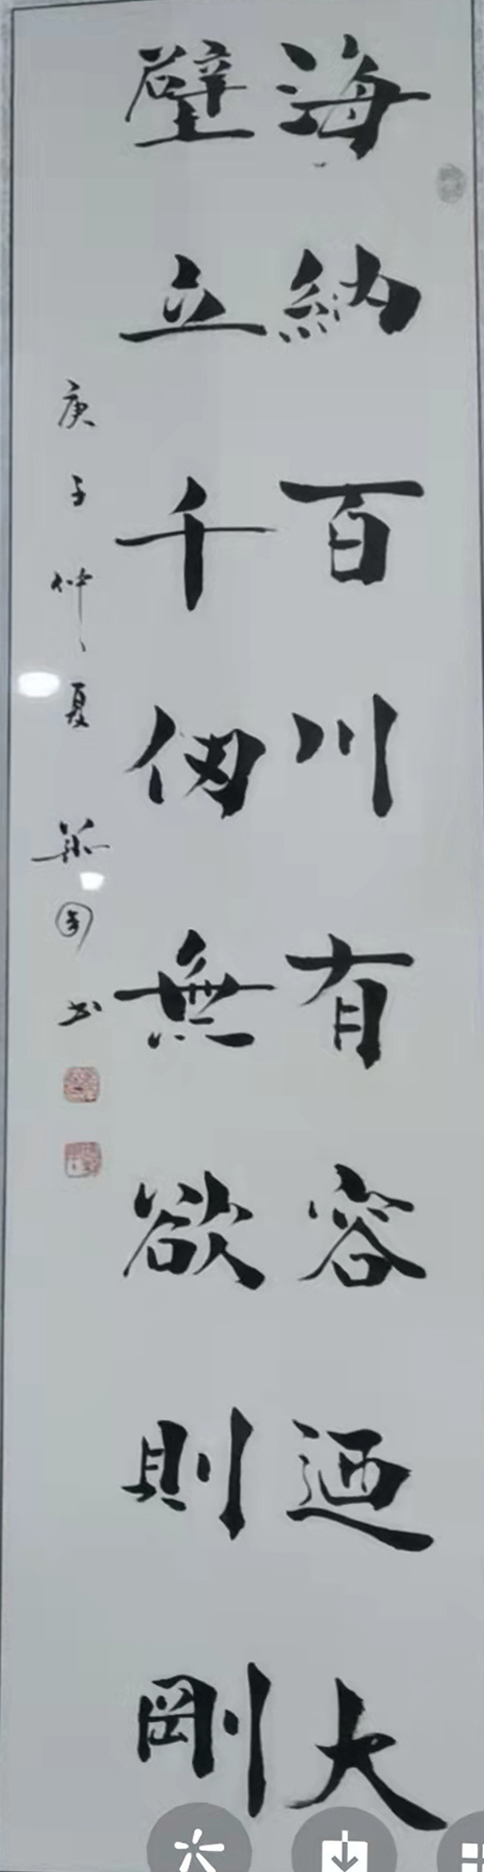 海納百川有容迺大
壁立千仭無欲則剛
庚子仲夏 书